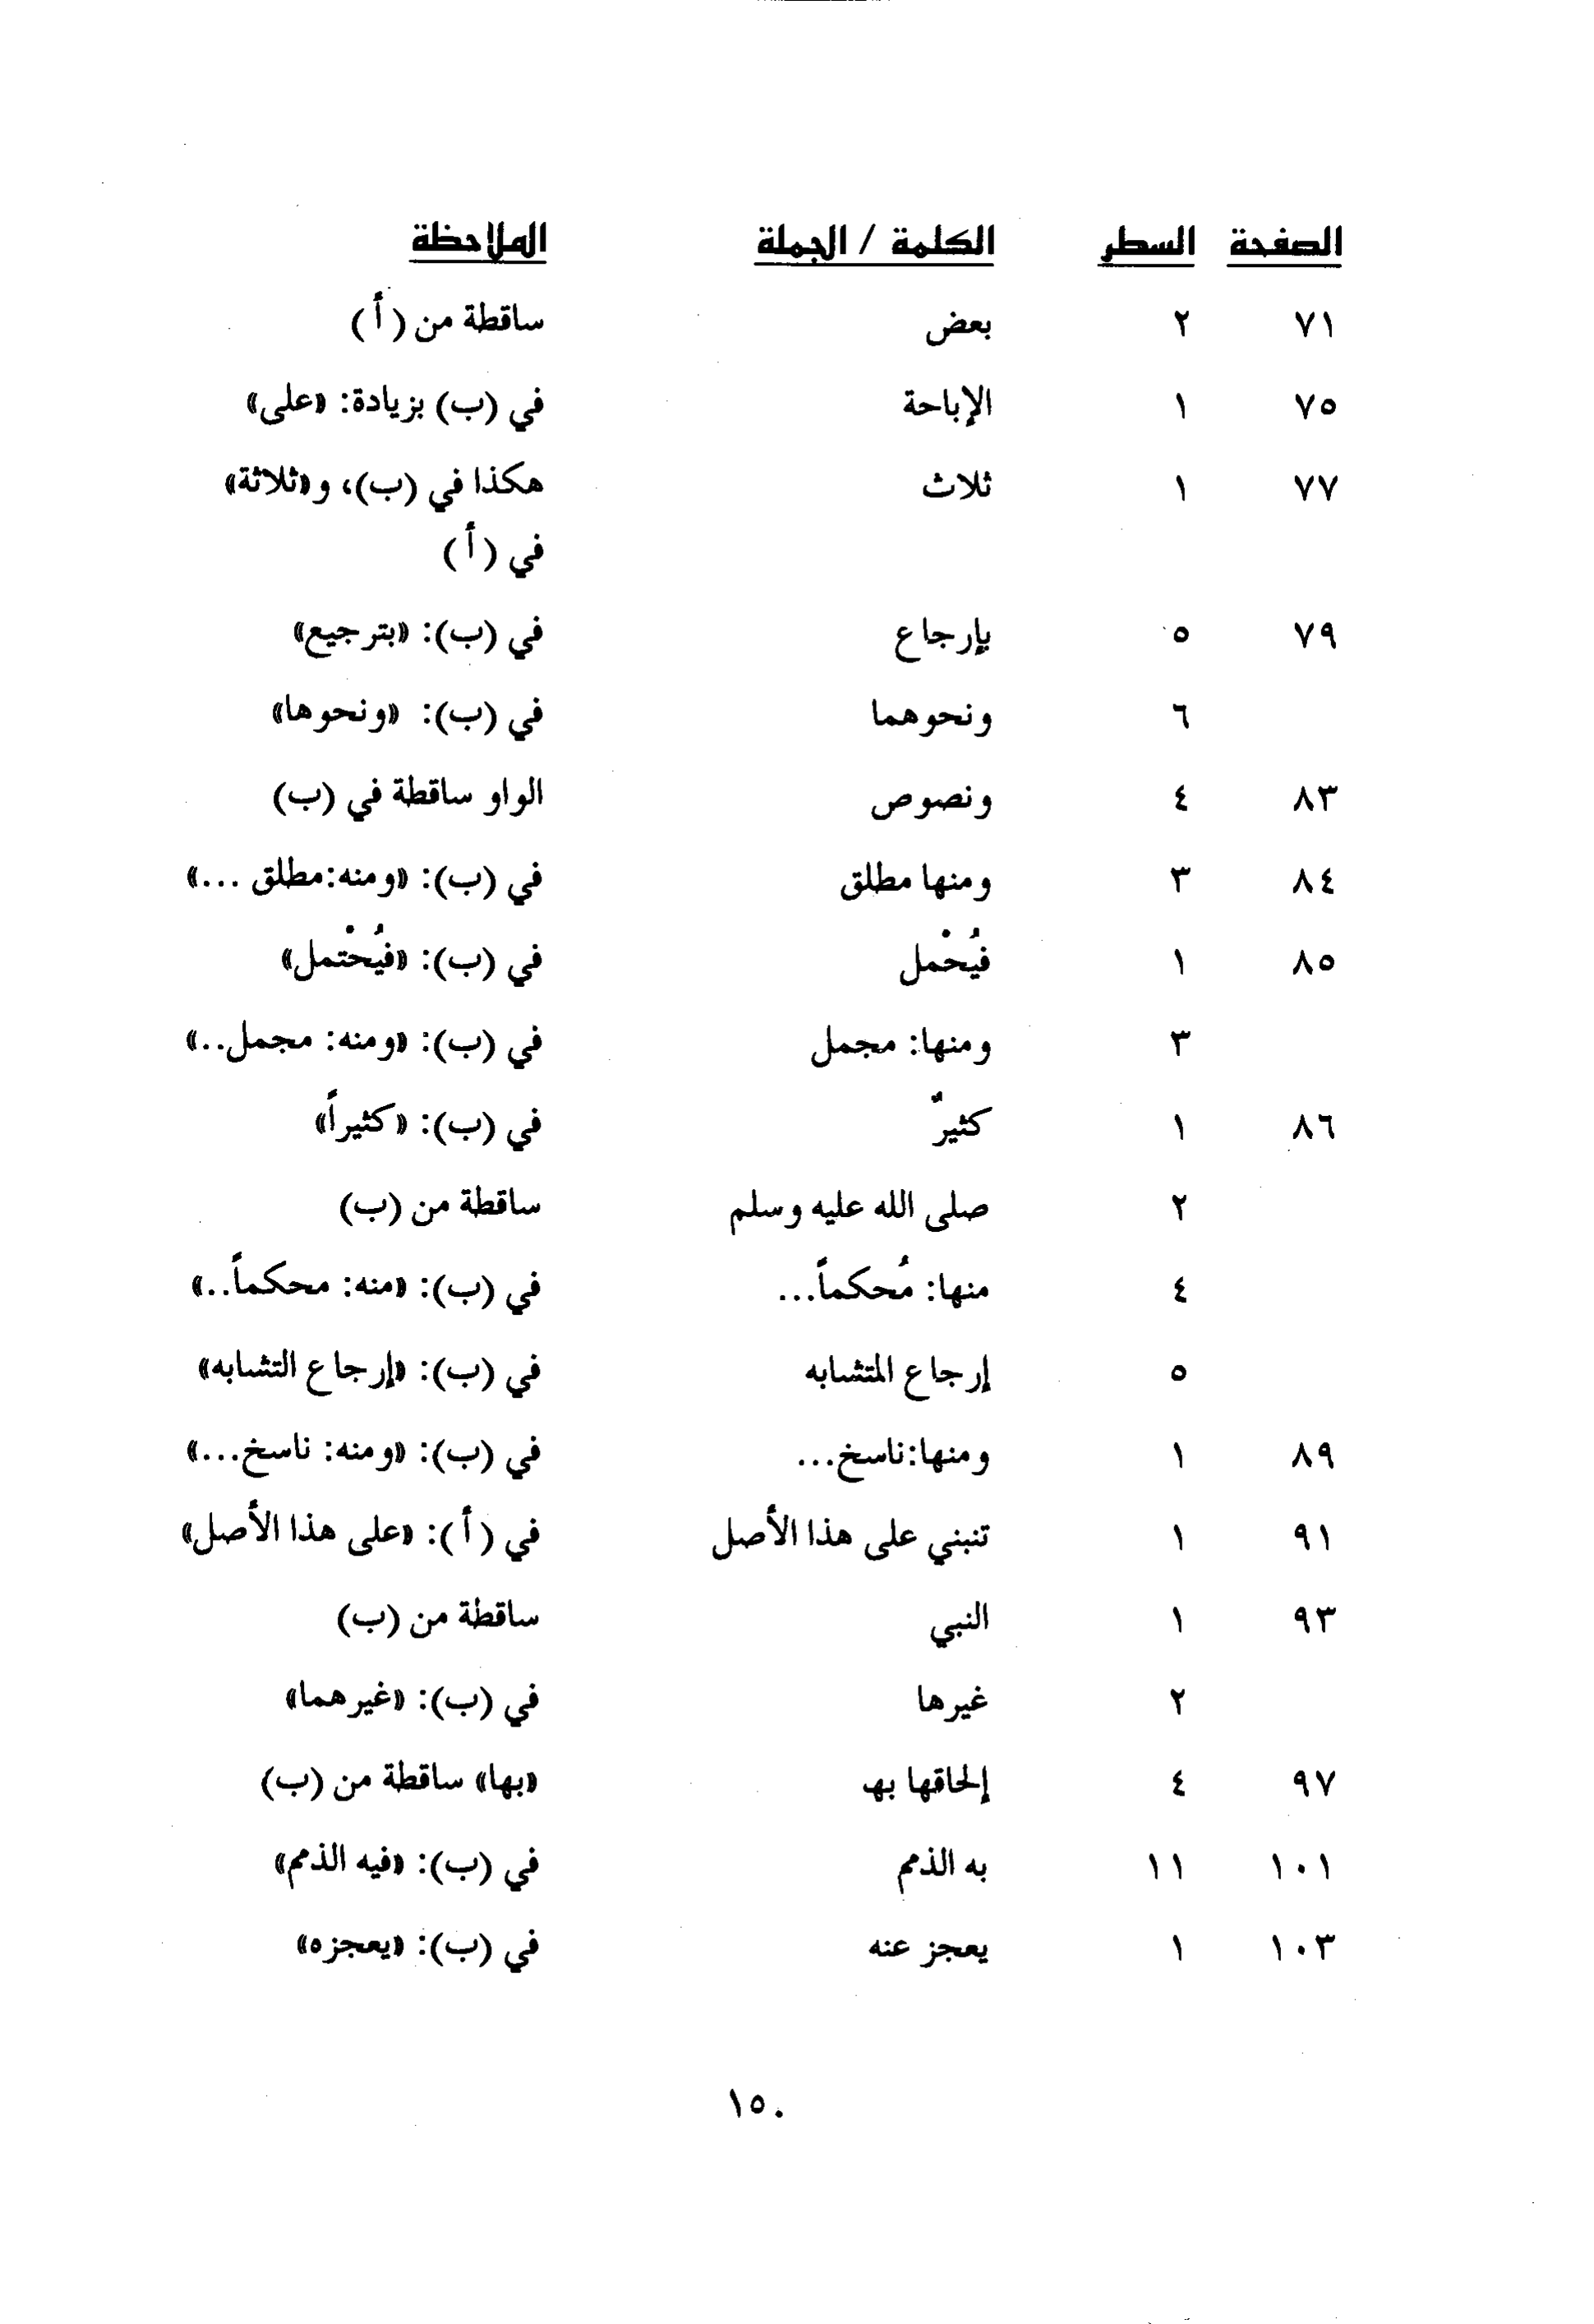 الصفحة السطر الكلمة / الجملة الملاحظة
٧١ ٢ بعض ساقطة من (أ)
٧٥ ١ الإباحة في (ب) بزيادة: «على»
٧٧ ١ ثلاث هكذا في (ب)، و«ثلاثة»
في (أ)
٧٩ ٥ بإرجاع في (ب): «بترجيع»
٦ ونحوهما في (ب): «ونحوها»
٨٣ ٤ ونصوص الواو ساقطة في (ب)
٨٤ ٣ ومنها مطلق في (ب): «ومنه:مطلق ...»
٨٥ ١ فيُحْمل في (ب): «فيُحْتمل»
٣ ومنها: مجمل في (ب): «ومنه: مجمل..»
٨٦ ١ كثيرٌ في (ب): «كثيراً»
٢ صلى الله عليه وسلم ساقطة من (ب)
٤ منها: مُحكماً... في (ب): «منه: محكماً..»
٥ إرجاع المتشابه في (ب): «إرجاع التشابه»
٨٩ ١ ومنها:ناسخ... في (ب): «ومنه: ناسخ...»
٩١ ١ تنبني على هذا الأصل في (أ): «على هذا الأصل»
٩٣ ١ النبي ساقطة من (ب)
٢ غيرها في (ب): «غيرهما»
٩٧ ٤ إلحاقها بها «بها» ساقطة من (ب)
١٠١ ١١ به الذمم في (ب): «فيه الذمم»
١٠٣ ١ يعجز عنه في (ب): «يعجزه»
١٥٠